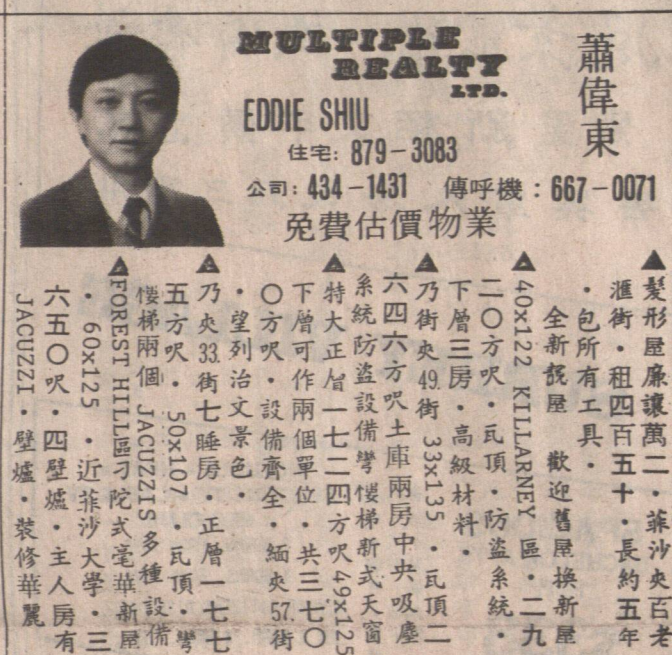 MULTIPLE
REALTY
LTD.
蕭偉東
EDDIE SHIU
住宅：879－3083
公司：434－1431 傳呼機：667－0071
免費估價物業
▲髮形屋廉讓萬二・菲沙夾百老
滙街・租四百五十・長約五年
・包所有工具・
全新靚屋 歡迎舊屋換新屋
▲40x122 KILLARNEY 區・二九
二〇方呎・瓦頂・防盜系統・
下層三房・高級材料・
▲乃街夾49.街 33x135・瓦頂二
六四六方呎土庫兩房中央吸塵
系統防盜設備彎樓梯新式天窗
▲特大正層一七二四方呎49x125
下層可作兩個單位・共三七〇
〇方呎・設備齊全・緬夾57.街
・望列治文景色・
▲乃夾33.街七睡房・正層一七七
五方呎・50x107・瓦頂・彎
樓梯兩個 JACUZZIS 多種設備
▲FOREST HILL區刁陀式毫華新屋
・60x125・近菲沙大學・三
六五〇呎・四壁爐・主人房有
JACUZZI・壁爐・裝修華麗